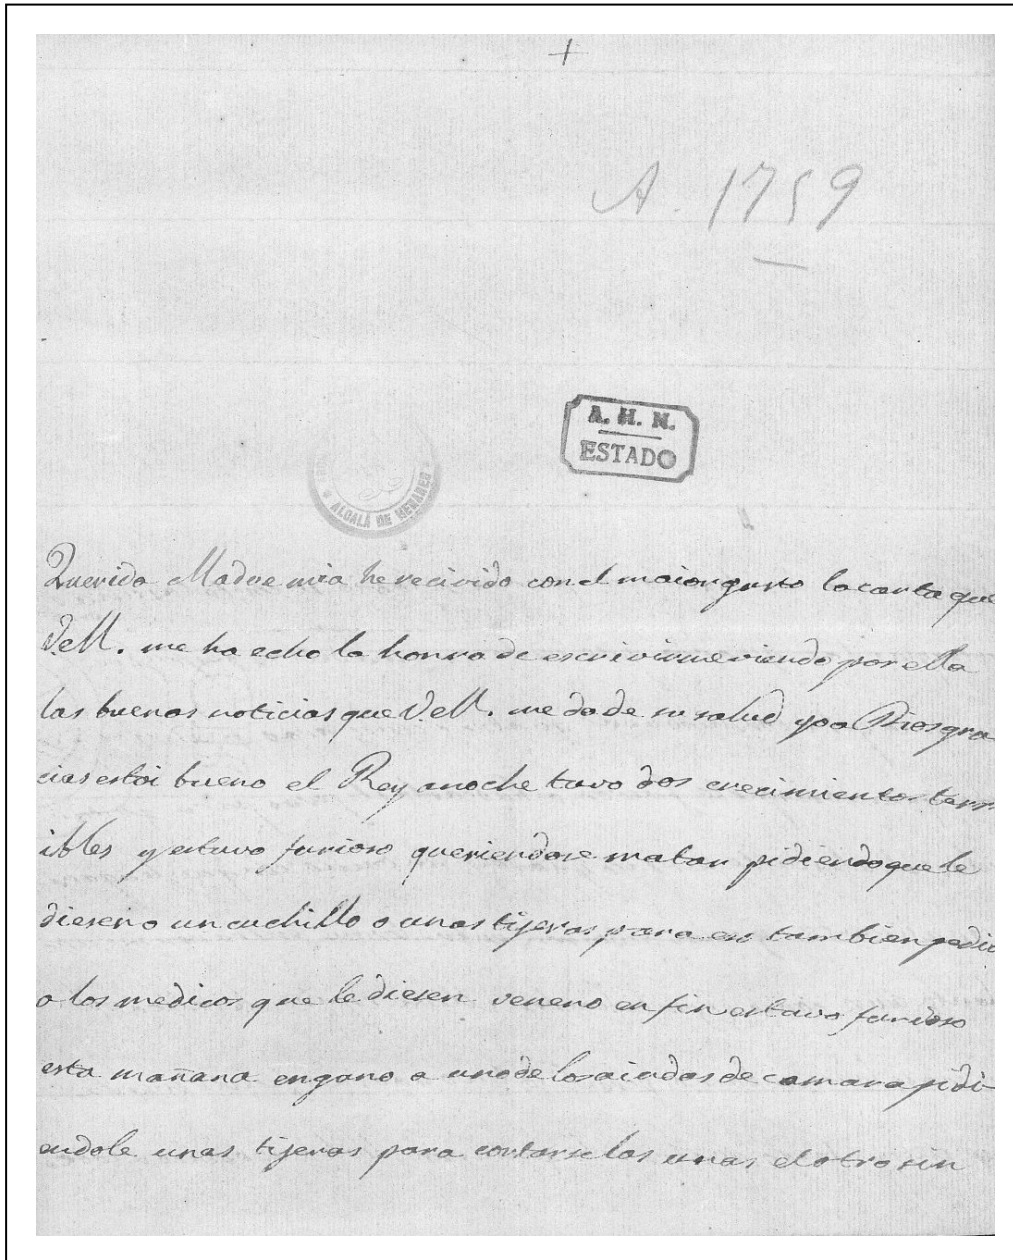 +
A. 1759
A. H. N.
ESTADO
ALCALÁ DE HENARES
Querida Madre mia he recivido con el maior gusto la carta que
V.M. me ha echo la honra de escrivirme viendo por ella
las buenas noticias que V.M. me da de su salud yo a Dios gra
cias estoi bueno el Rey anoche tuvo dos crecimientos terr
ibles y estuvo furioso queriendose matar pidiendo que le
diesen o un cuchillo o unas tijeras para eso tambien pedia
a los medicos que le diesen veneno en fin estuvo furioso
esta mañana engano a uno de los aiudas de camara pidi
endole unas tijeras para cortarse las unas el otro sin